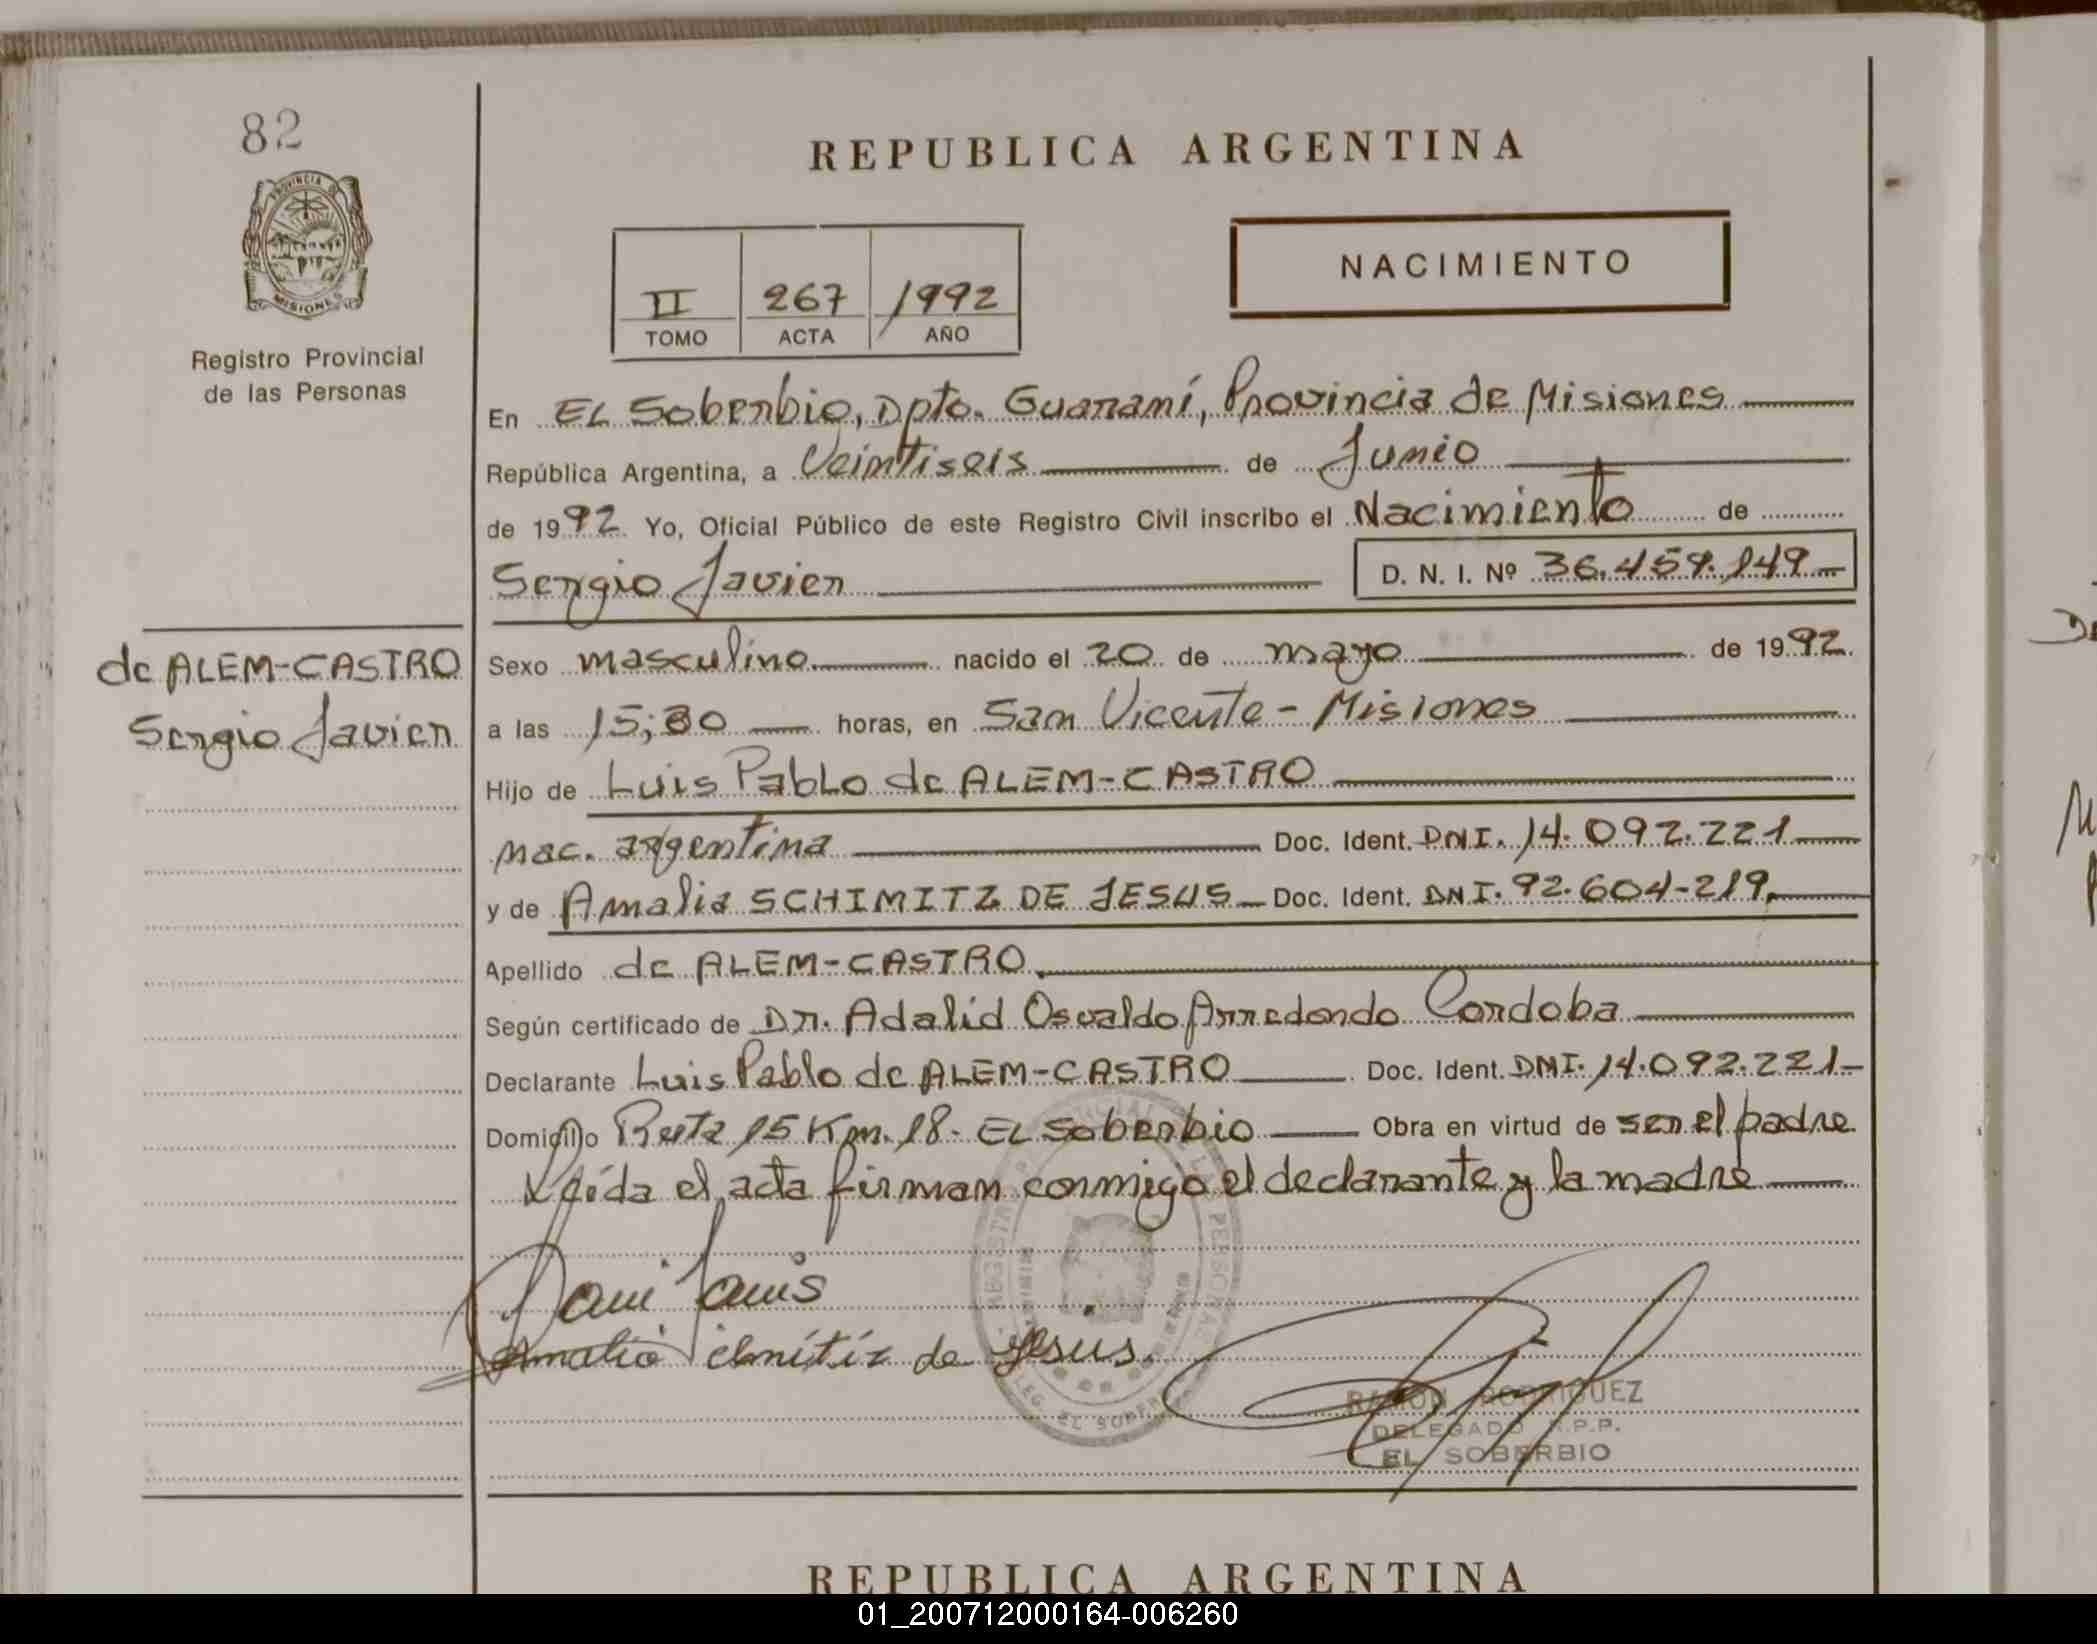 82
PROVINCIA DE
MISIONES
Registro Provincial
de las Personas
REPUBLICA ARGENTINA
II 267 1992
TOMO ACTA AÑO
NACIMIENTO
En EL Soberbio, Dpto. Guaraní, Provincia de Misiones
República Argentina, a Veintiseis de Junio
de 1992 Yo, Oficial Público de este Registro Civil inscribo el Nacimiento de
Sergio Javier D. N. I. Nº 36.459.149
de ALEM-CASTRO
Sergio Javier
Sexo masculino nacido el 20 de mayo de 1992.
a las 15;30 horas, en San Vicente - Misiones
Hijo de Luis Pablo de ALEM-CASTRO
nac. argentina Doc. Ident. DNI. 14.092.221
y de Amalia SCHIMITZ DE JESUS Doc. Ident. DNI. 92.604-219.
Apellido de ALEM-CASTRO.
Según certificado de Dr. Adalid Osvaldo Arredondo Cordoba
Declarante Luis Pablo de ALEM-CASTRO Doc. Ident. DNI. 14.092.221
Domicilio Ruta 15 Km. 18- EL Soberbio Obra en virtud de ser el padre
Leída el acta firman conmigo el declarante y la madre
de Jesus.
RAMON RODRIGUEZ
DELEGADO R.P.P.
EL SOBERBIO
REPUBLICA ARGENTINA
01_200712000164-006260